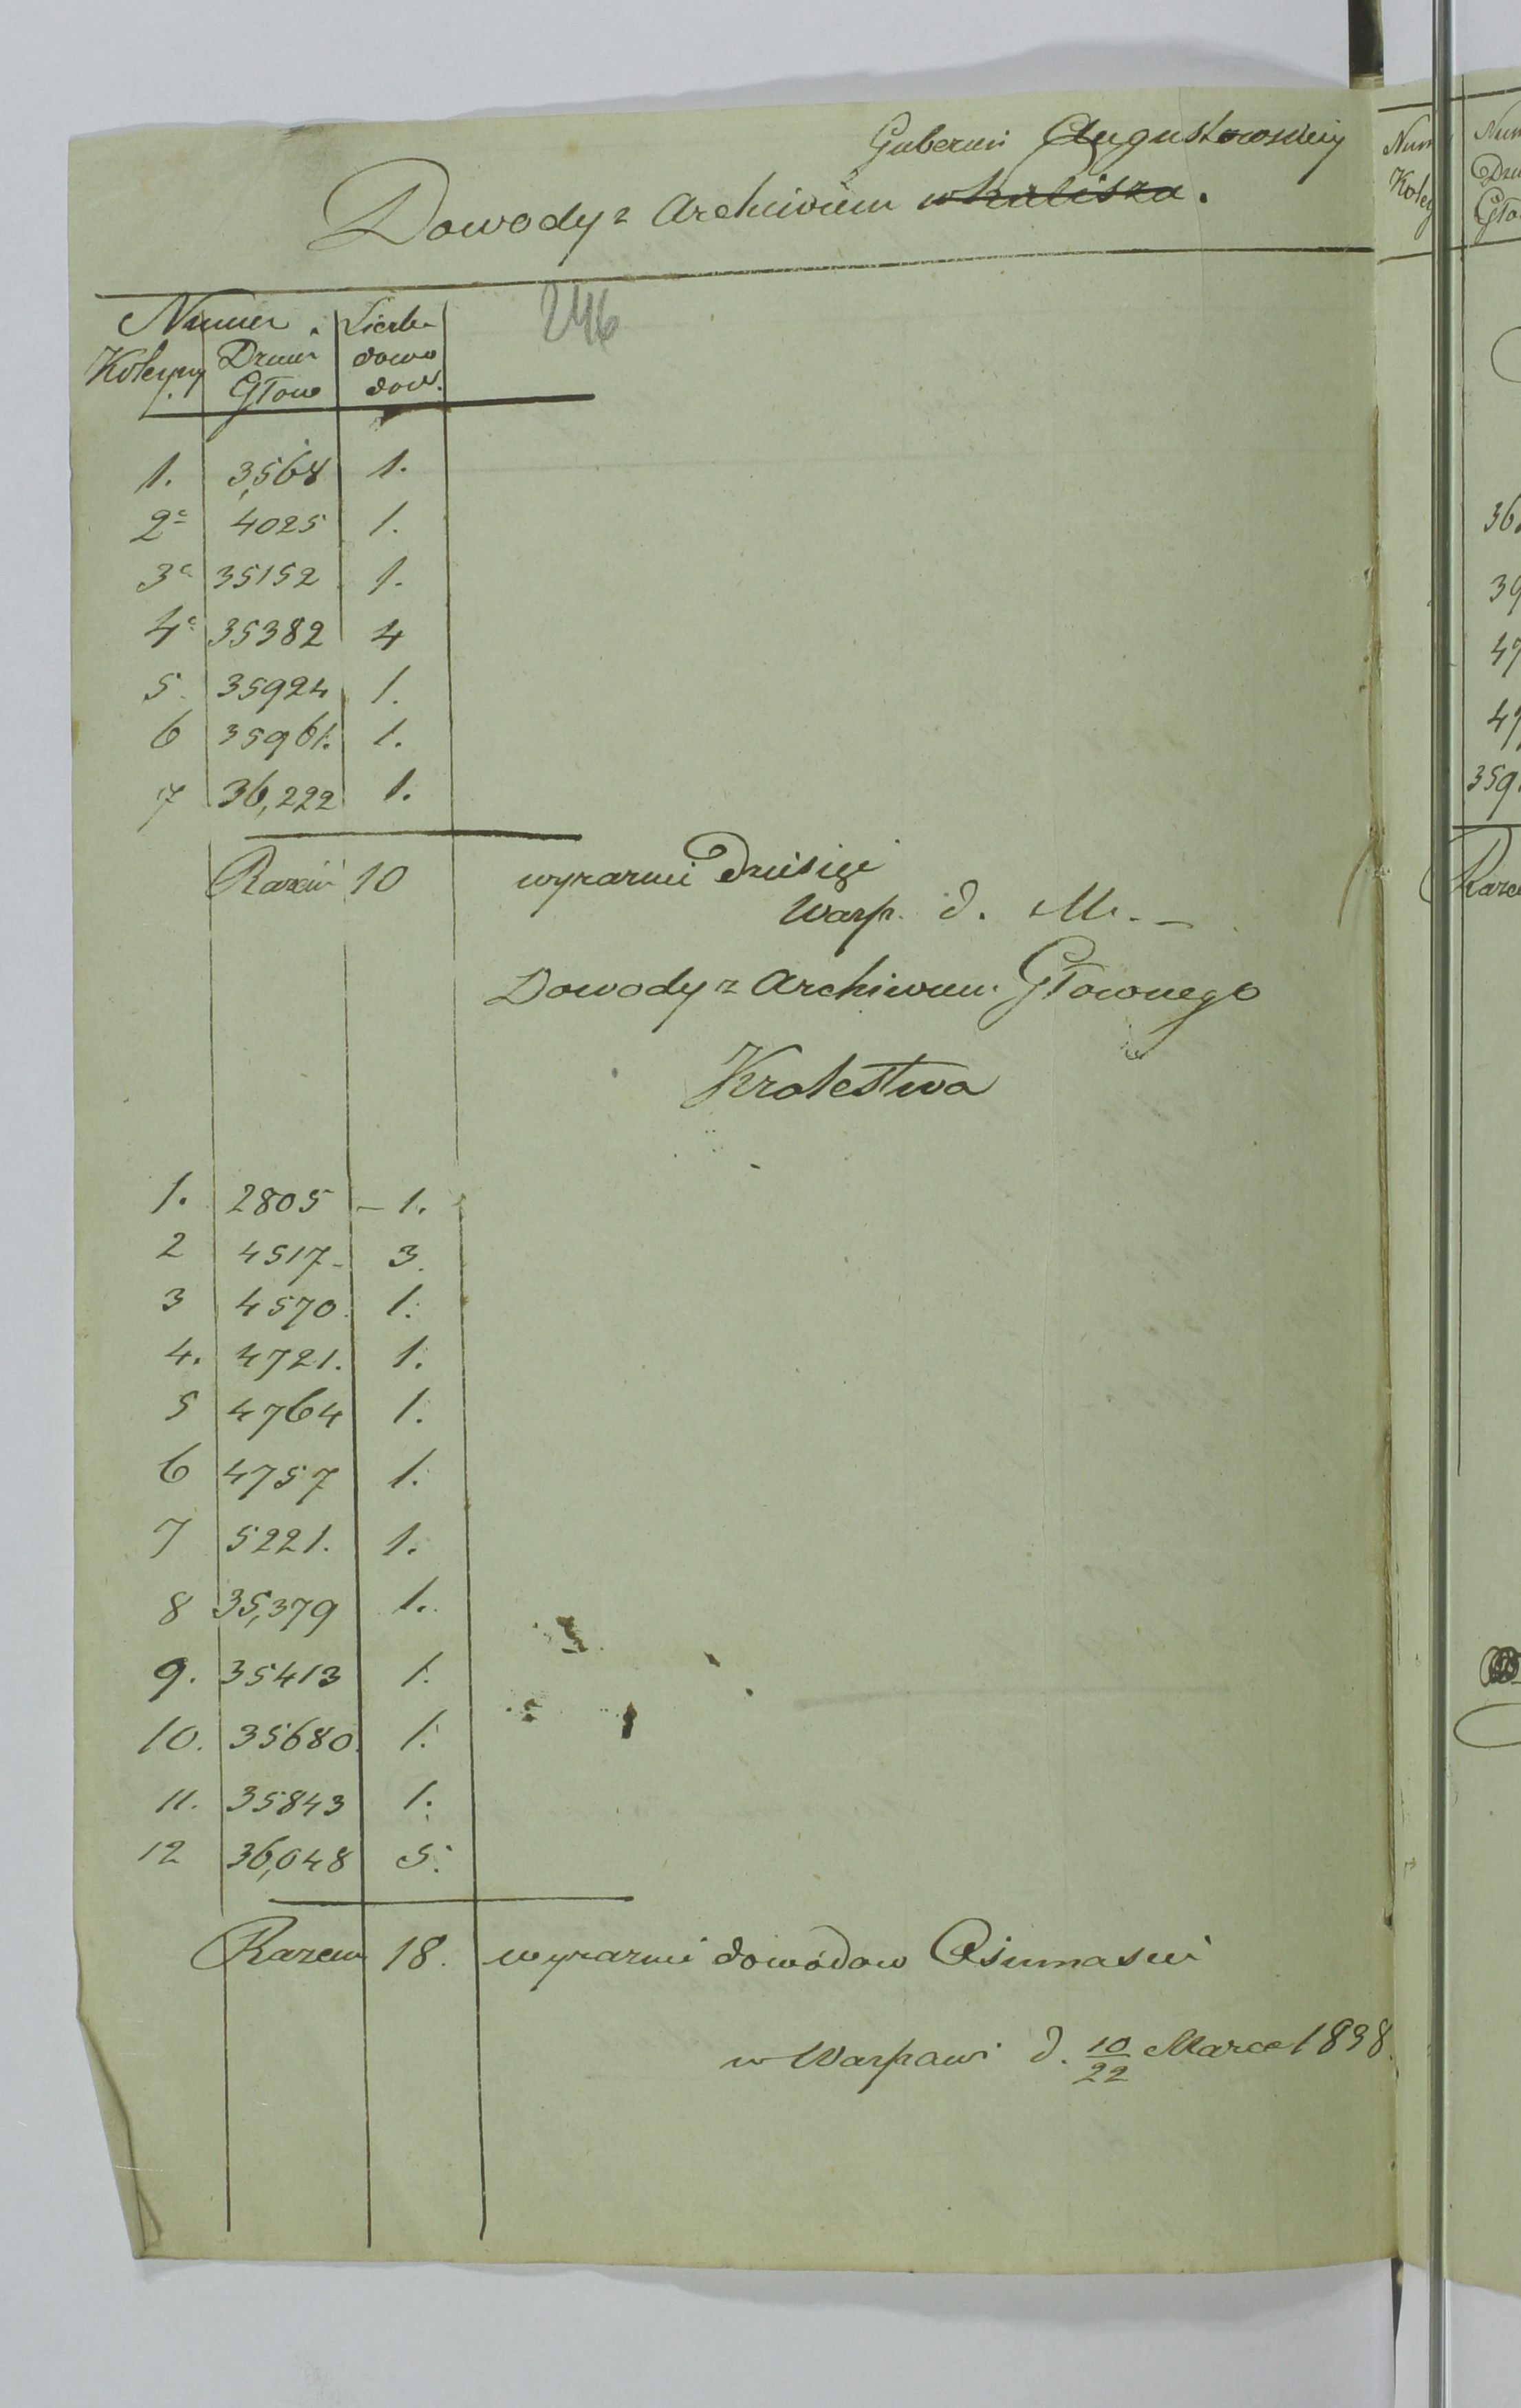 Guberni Augustowskiej
Dowody z Archiwum w Kalisza.
246
Numer Liczba
Kolejny Dzien dowo
Głow dow.
1. 3,568 1.
2 4025 1.
3 35152 1.
4 35382 4
5. 35924 1.
6 35961. 1.
7 36,222 1.
Razem 10 wyraznie Dziesięć
Warsz. d. M. —
Dowody z Archiwum Głownego
Krolestwa
1. 2805 – 1.
2 4517 – 3.
3 4570. 1.
4. 4721. 1.
5 4764 1.
6 4757 1.
7 5221. 1.
8 35,379 1.
9. 35413 1.
10. 35680. 1.
11. 35843 1.
12 36,048 5.
Razem 18. wyraznie dowódow Osimnascie
w Warszawie d. 10/22 Marca 1838.
Num
Koley
Num
Dzie
Gło
36
39
47
47
359
Raze